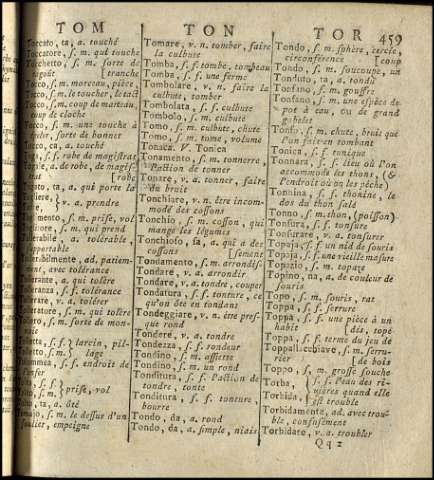 TOM
TON
TOR
459
Toccato, ta, a. touché
Toccatore, s. m. qui touche
Tocchetto, s. m. sorte de
ragoût [tranche
Tocco, s. m. morceau, pièce,
Tocco, s. m. le toucher, le tact
Tocco, s. m. coup de marteau,
coup de cloche
Tocco, s. m. une touche à
sorte de bonnet
Tocco, ca, a. touché
s. f. robe de magistrat
a. de robe, de magis-
[robe
ta, a. qui porte la
v. a. prendre
s. m. prise, vol
s. m. qui prend
a. tolérable,
supportable
ad. patiem-
ment, avec tolérance
a. qui tolère
s. f. tolérance
v. a. tolérer
s. m. qui tolère
s. m. sorte de mon-
s. f. larcin, pil-
s. m. lage
s. f. endroit de
prise, vol
ta, a. ôté
s. m. le dessus d'un
soulier, empeigne
Tomare, v. n. tomber, faire
la culbute
Tomba, s. f. tombe, tombeau
Tomba, s. f. une ferme
Tombolare, v. n. faire la
culbute, tomber
Tombolata, s. f. culbute
Tombolo, s. m. culbute
Tomo, s. m. culbute, chute
Tomo, s. m. tome, volume
Tonaca. V. Tonica
Tonamento, s. m. tonnerre,
l'action de tonner
Tonare, v. n. tonner, faire
du bruit
Tonchiare, v. n. être incom-
modé des cossons
Tonchio, s. m. cosson, qui
mange les légumes
Tonchioso, sa, a. qui a des
cossons [sement
Tondamento, s. m. arrondis-
Tondare, v. a. arrondir
Tondare, v. a. tondre, couper
Tondatura, s. f. tonture, ce
qu'on ôte en tondant
Tondeggiare, v. n. être pres-
que rond
Tondere, v. a. tondre
Tondezza, s. f. rondeur
Tondino, s. m. assiette
Tondino, s. m. un rond
Tonditura, s. f. l'action de
tondre, tonte
Tonditura, s. f. tonture,
bourre
Tondo, da, a. rond
Tondo, da, a. simple, niais
Tondo, s. m. sphère, cercle,
circonférence [coup
Tondo, s. m. soucoupe, un
Tonduto, ta, a. tondu
Tonfano, s. m. gouffre
Tonfano, s. m. une espèce de
pot à eau, ou de grand
gobelet
Tonfo, s. m. chute, bruit que
l'on fait en tombant
Tonica, s. f. tunique
Tonnara, s. f. lieu où l'on
accommode les thons, (&
l'endroit où on les pêche)
Tonnina, s. f. thonine, le
dos du thon salé
Tonno, s. m. thon, (poisson)
Tonsura, s. f. tonsure
Tonsurare, v. a. tonsurer
Topaja, s. f. un nid de souris
Topaja, s. f. une vieille masure
Topazio, s. m. topaze
Topino, na, a. de couleur de
souris
Topo, s. m. souris, rat
Toppa, s. f. serrure
Toppa, s. f. une pièce à un
habit [dés, topé
Toppa, s. f. terme du jeu de
Toppallacchiave, s. m. serru-
rier [de bois
Toppo, s. m. grosse souche
Torba, s. f. l'eau des ri-
Torbida, vières quand elle
est trouble
Torbidamente, ad. avec trou-
ble, confusément
Torbidare, v. a. troubler
Qq 2